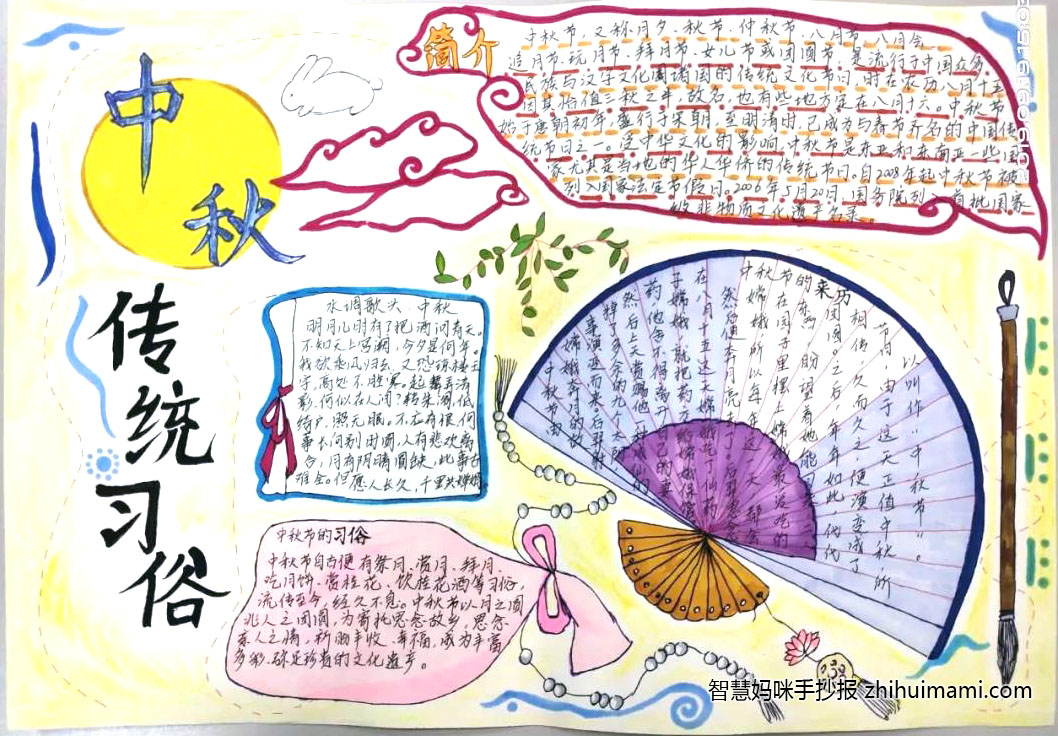 中秋
传统习俗
简介
中秋节,又称月夕、秋节、仲秋节、八月节、八月会、
追月节、玩月节、拜月节、女儿节或团圆节,是流行于中国众多
民族与汉字文化圈诸国的传统文化节日,时在农历八月十五
因其恰值三秋之半,故名,也有些地方定在八月十六。中秋节
始于唐朝初年,盛行于宋朝,至明清时,已成为与春节齐名的中国传
统节日之一。受中华文化的影响,中秋节是东亚和东南亚一些国
家尤其是当地的华人华侨的传统节日。自2008年起中秋节被
列入国家法定节假日。2006年5月20日,国务院列入首批国家
级非物质文化遗产名录。
水调歌头 中秋
明月几时有?把酒问青天。
不知天上宫阙,今夕是何年。
我欲乘风归去,又恐琼楼玉
宇,高处不胜寒。起舞弄清
影,何似在人间?转朱阁,低
绮户,照无眠。不应有恨,何
事长向别时圆,人有悲欢离
合,月有阴晴圆缺,此事古
难全。但愿人长久,千里共婵娟。
中秋节的习俗
中秋节自古便有祭月、赏月、拜月、
吃月饼、赏桂花、饮桂花酒等习俗,
流传至今,经久不息。中秋节以月之圆
兆人之团圆,为寄托思念故乡,思念
亲人之情,祈盼丰收、幸福,成为丰富
多彩、弥足珍贵的文化遗产。
中秋节的来历
中秋节由
嫦娥奔月的故
事演变而来。后羿射
掉了多余的九个太阳,
以叫作“中秋节”。
节日,由于这一天正值中秋,所
相传,久而久之便演变成了
智慧妈咪手抄报 zhihuimami.com